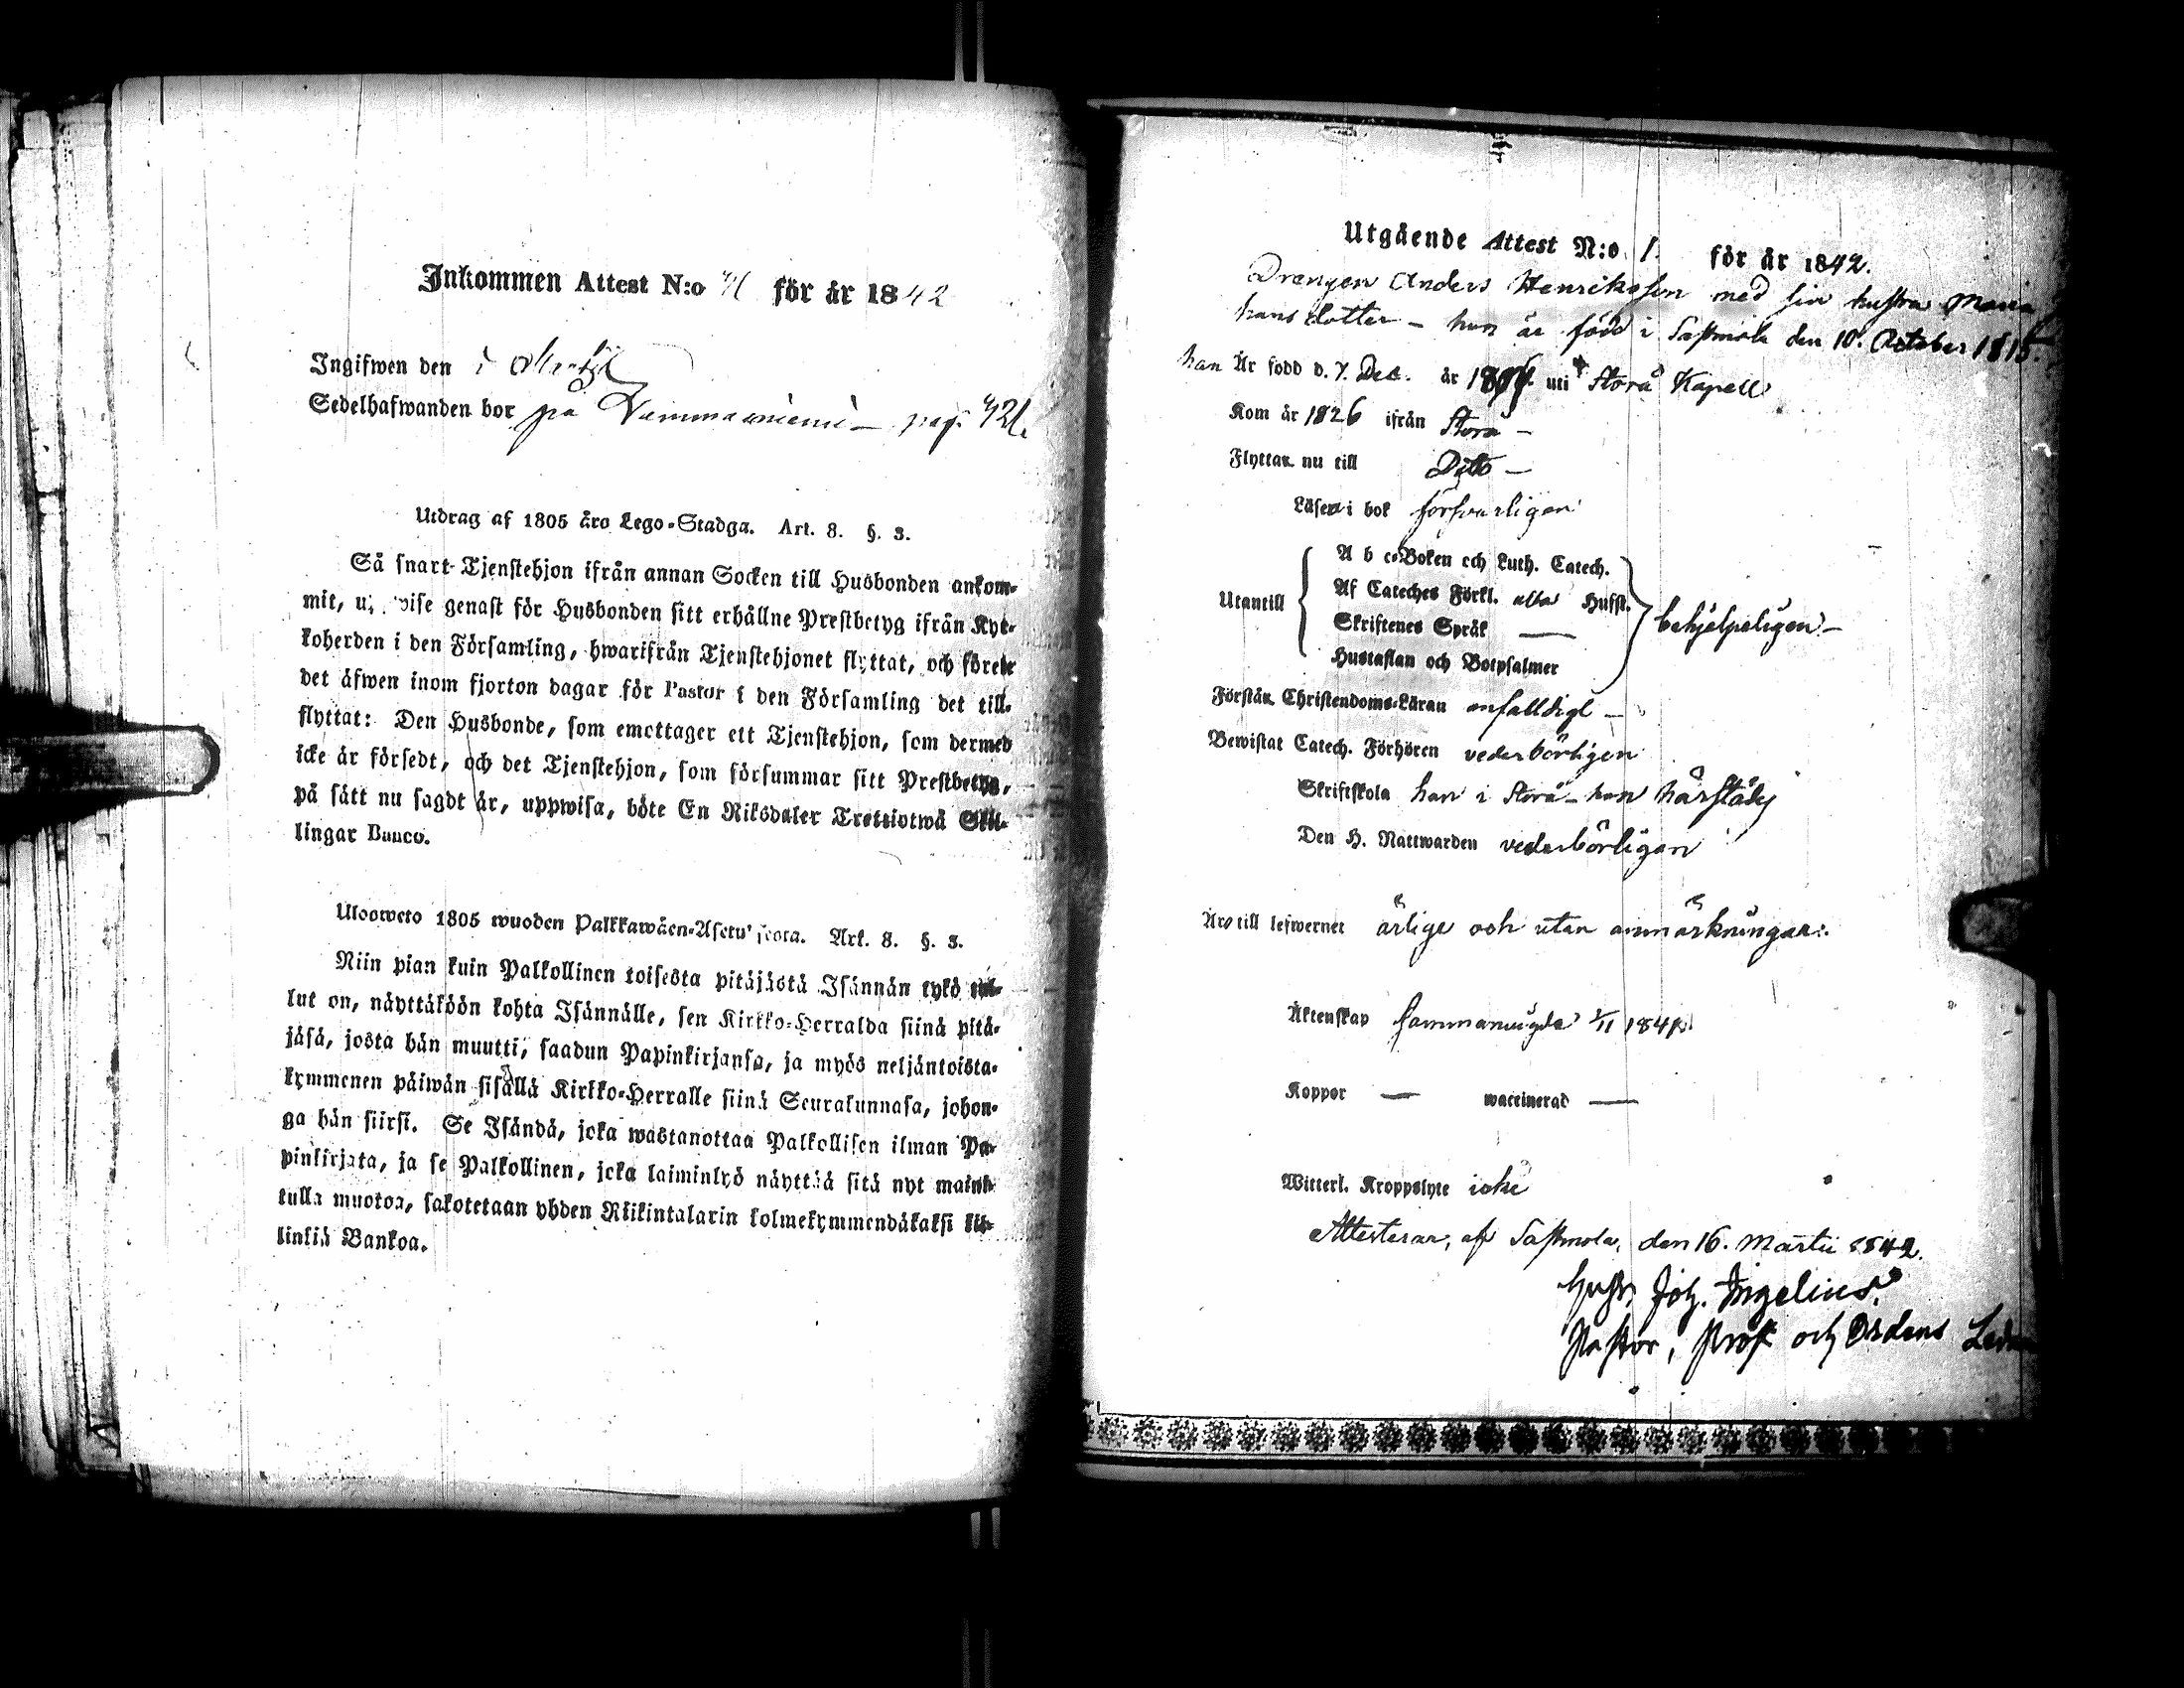 Inkommen Attest N:o för år 1842
Ingifwen den i Martii
Sedelhafwanden bor på pag. 421.
Utdrag af 1805 års Lego-Stadga. Art. 8. §. 3.
Så snart Tjenstehjon ifrån annan Socken till Husbonden ankom-
mit, wise genast för Husbonden sitt erhållne Prestbetyg ifrån Kyr-
koherden i den Församling, hwarifrån Tjenstehjonet flyttat, och förete
det äfwen inom fjorton dagar för Pastor i den Församling det till-
flyttat: Den Husbonde, som emottager ett Tjenstehjon, som dermed
icke är försedt, och det Tjenstehjon, som försummar sitt Prestbetyg,
på sätt nu sagdt är, uppwisa, böte En Riksdaler Trettiotwå Skil-
lingar Banco.
Uloswcto 1805 wuoden Palkkawäen-Asetuksesta. Art. 8. §. 3.
Niin pian kuin Palkollinen toisesta pitäjästä Isännän tykö tul-
lut on, näyttäköön kohta Isännälle, sen Kirkko-Herralda siinä pitä-
jäsä, josta hän muutti, saadun Papinkirjansa, ja myös neljäntoista-
kymmenen päiwän sisällä Kirkko-Herralle siinä Seurakunnasa, johon-
ga hän siirsi. Se Isändä, joka wastanottaa Palkollisen ilman Pa-
pinkirjata, ja se Palkollinen, joka laiminlyö näyttää sitä nyt mainit-
tulla muotoa, sakotetaan yhden Riikintalarin kolmekymmendäkaksi kil-
linkiä Bankoa.
Utgående Attest N:o 1. för år 1842.
Drengen Anders Henriksson med sin hustru Maria
hansdotter – hon är född i Sastmola den 10. October 1815.
han Är född d. 7. Dec. år uti Storå Kapell
Kom år 1826 ifrån Storå –
Flyttar nu till Dito –
Läser i bok försvarligen
Utantill
A b c-Boken och Luth. Catech.
Af Cateches Förkl. alla Hufst.
Skriftenes Språk —
Hustaflan och Botpsalmer
behjelpeligen –
Förstår Christendoms-Läran enfalldigt –
Bewistat Catech. Förhören vederbörligen
Skriftskola han i Storå – hon härstädes
Den H. Nattwarden vederbörligen
Äro till lefwernet ärlige och utan anmärkningar.
Äktenskap sammanvigde 1841
Koppor — waccinerad —
Witterl. Kroppslyte icke
Attesterar, af Sastmola, den 16. Martii 1842.
Joh. Ingelius
Pastor, Prost och Ordens Ledam